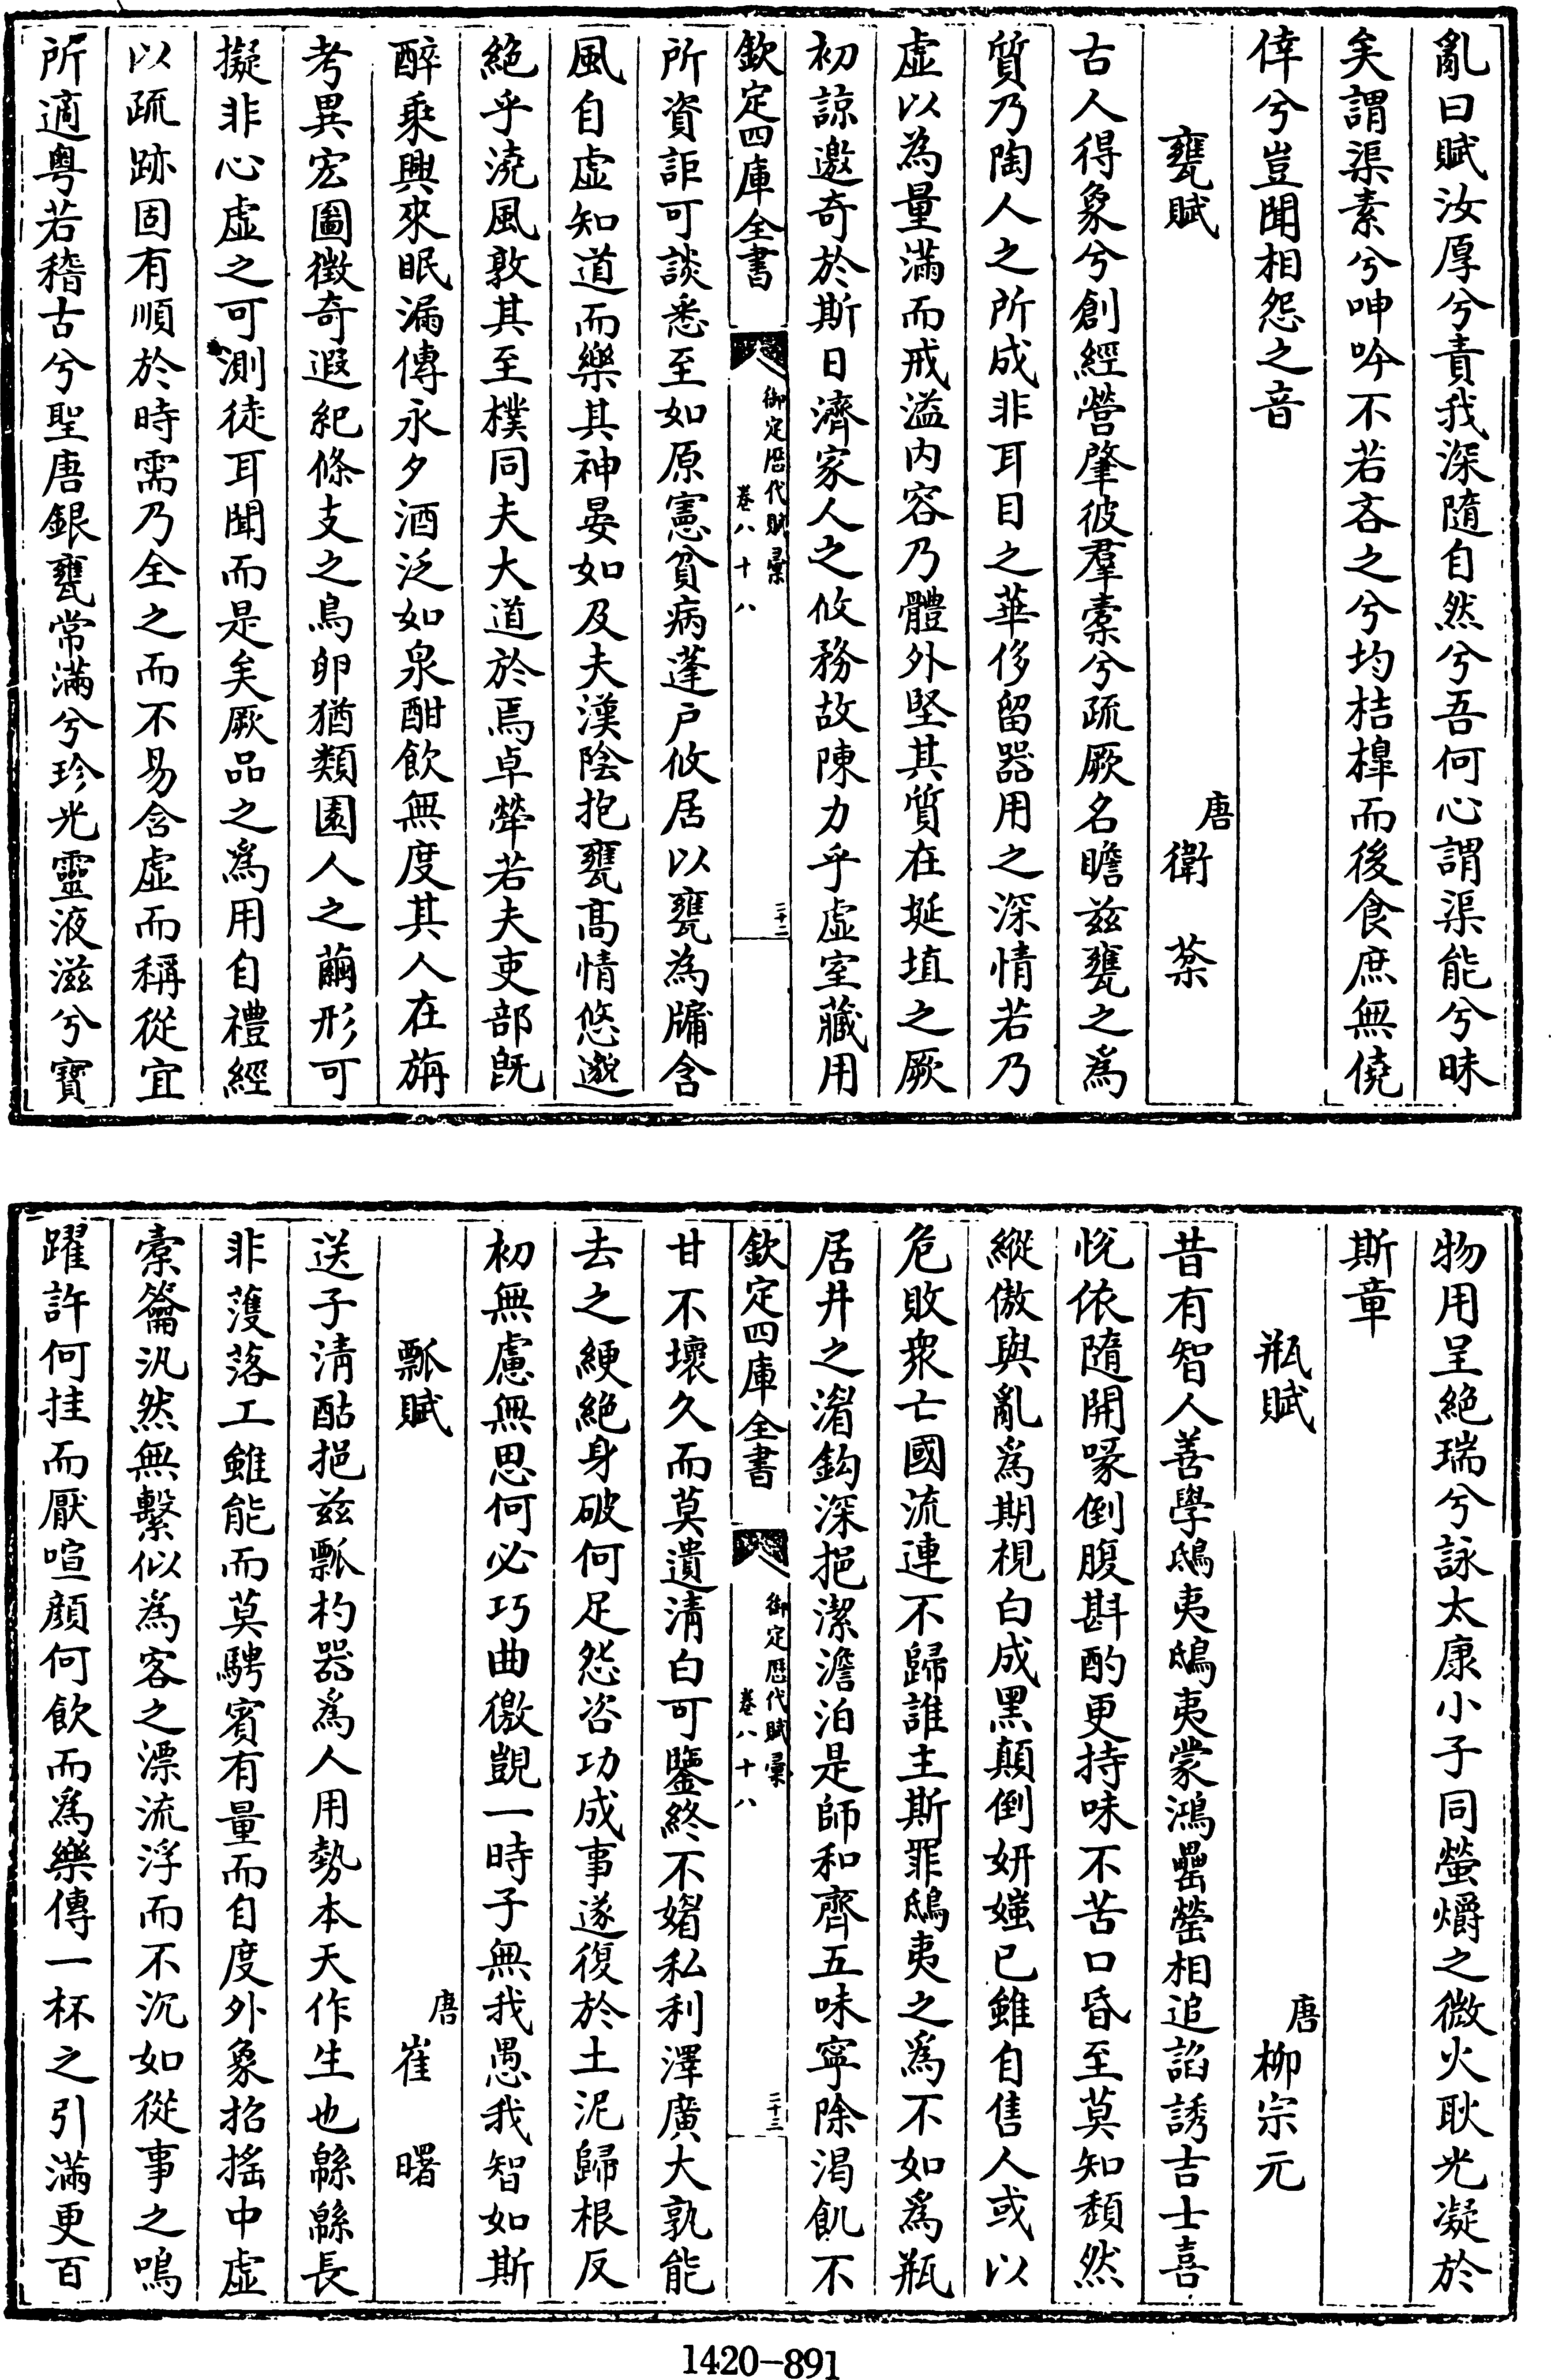 亂曰賦汝厚兮責我深隨自然兮吾何心謂渠能兮昧
矣謂渠素兮呻吟不若吝之兮均桔橰而後食庶無僥
倖兮豈聞相怨之音
甕賦
唐衛棻
古人得象兮創經營肇彼羣橐兮疏厥名瞻兹甕之爲
質乃陶人之所成非耳目之華侈留器用之深情若乃
虚以為量滿而戒溢内容乃體外堅其質在埏埴之厥
初諒邀奇於斯日濟家人之攸務故陳力乎虚室藏用
欽定四庫全書
御定歴代賦彙
卷八十八
二十二
所資詎可談悉至如原憲貧病蓬戶攸居以甕為牖含
風自虚知道而樂其神晏如及夫漢陰抱甕髙情悠邈
絶乎澆風敦其至樸同夫大道於焉卓犖若夫吏部旣
醉乘興來眠漏傳永夕酒泛如泉酣飲無度其人在旃
考異宏圖徴奇遐紀條支之鳥卵猶類園人之繭形可
擬非心虚之可測徒耳聞而是矣厥品之爲用自禮經
以疏跡固有順於時需乃全之而不易含虚而稱從宜
所適粤若稽古兮聖唐銀甕常滿兮珍光靈液滋兮寶
物用呈絶瑞兮詠太康小子同螢爝之微火耿光凝於
斯章
瓶賦
唐柳宗元
昔有智人善學鴟夷鴟夷蒙鴻罍罃相追諂誘吉士喜
悅依隨開喙倒腹斟酌更持味不苦口昏至莫知頽然
縱傲與亂爲期視白成黑顛倒妍媸已雖自售人或以
危敗衆亡國流連不歸誰主斯罪鴟夷之爲不如爲瓶
居井之濳鈎深挹潔澹泊是師和齊五味寧除渴飢不
欽定四庫全書
御定歴代賦彙
卷八十八
二十三
甘不壞久而莫遺清白可鑒終不媚私利澤廣大孰能
去之綆絶身破何足怨咨功成事遂復於土泥歸根反
初無慮無思何必巧曲徼覬一時子無我愚我智如斯
瓢賦
唐崔曙
送子清酤挹兹瓢杓器爲人用勢本天作生也緜緜長
非濩落工雖能而莫騁賓有量而自度外象招搖中虚
橐籥汎然無繫似為客之漂流浮而不沉如從事之鳴
躍許何挂而厭喧顔何飲而爲樂傳一杯之引滿更百
1420-891